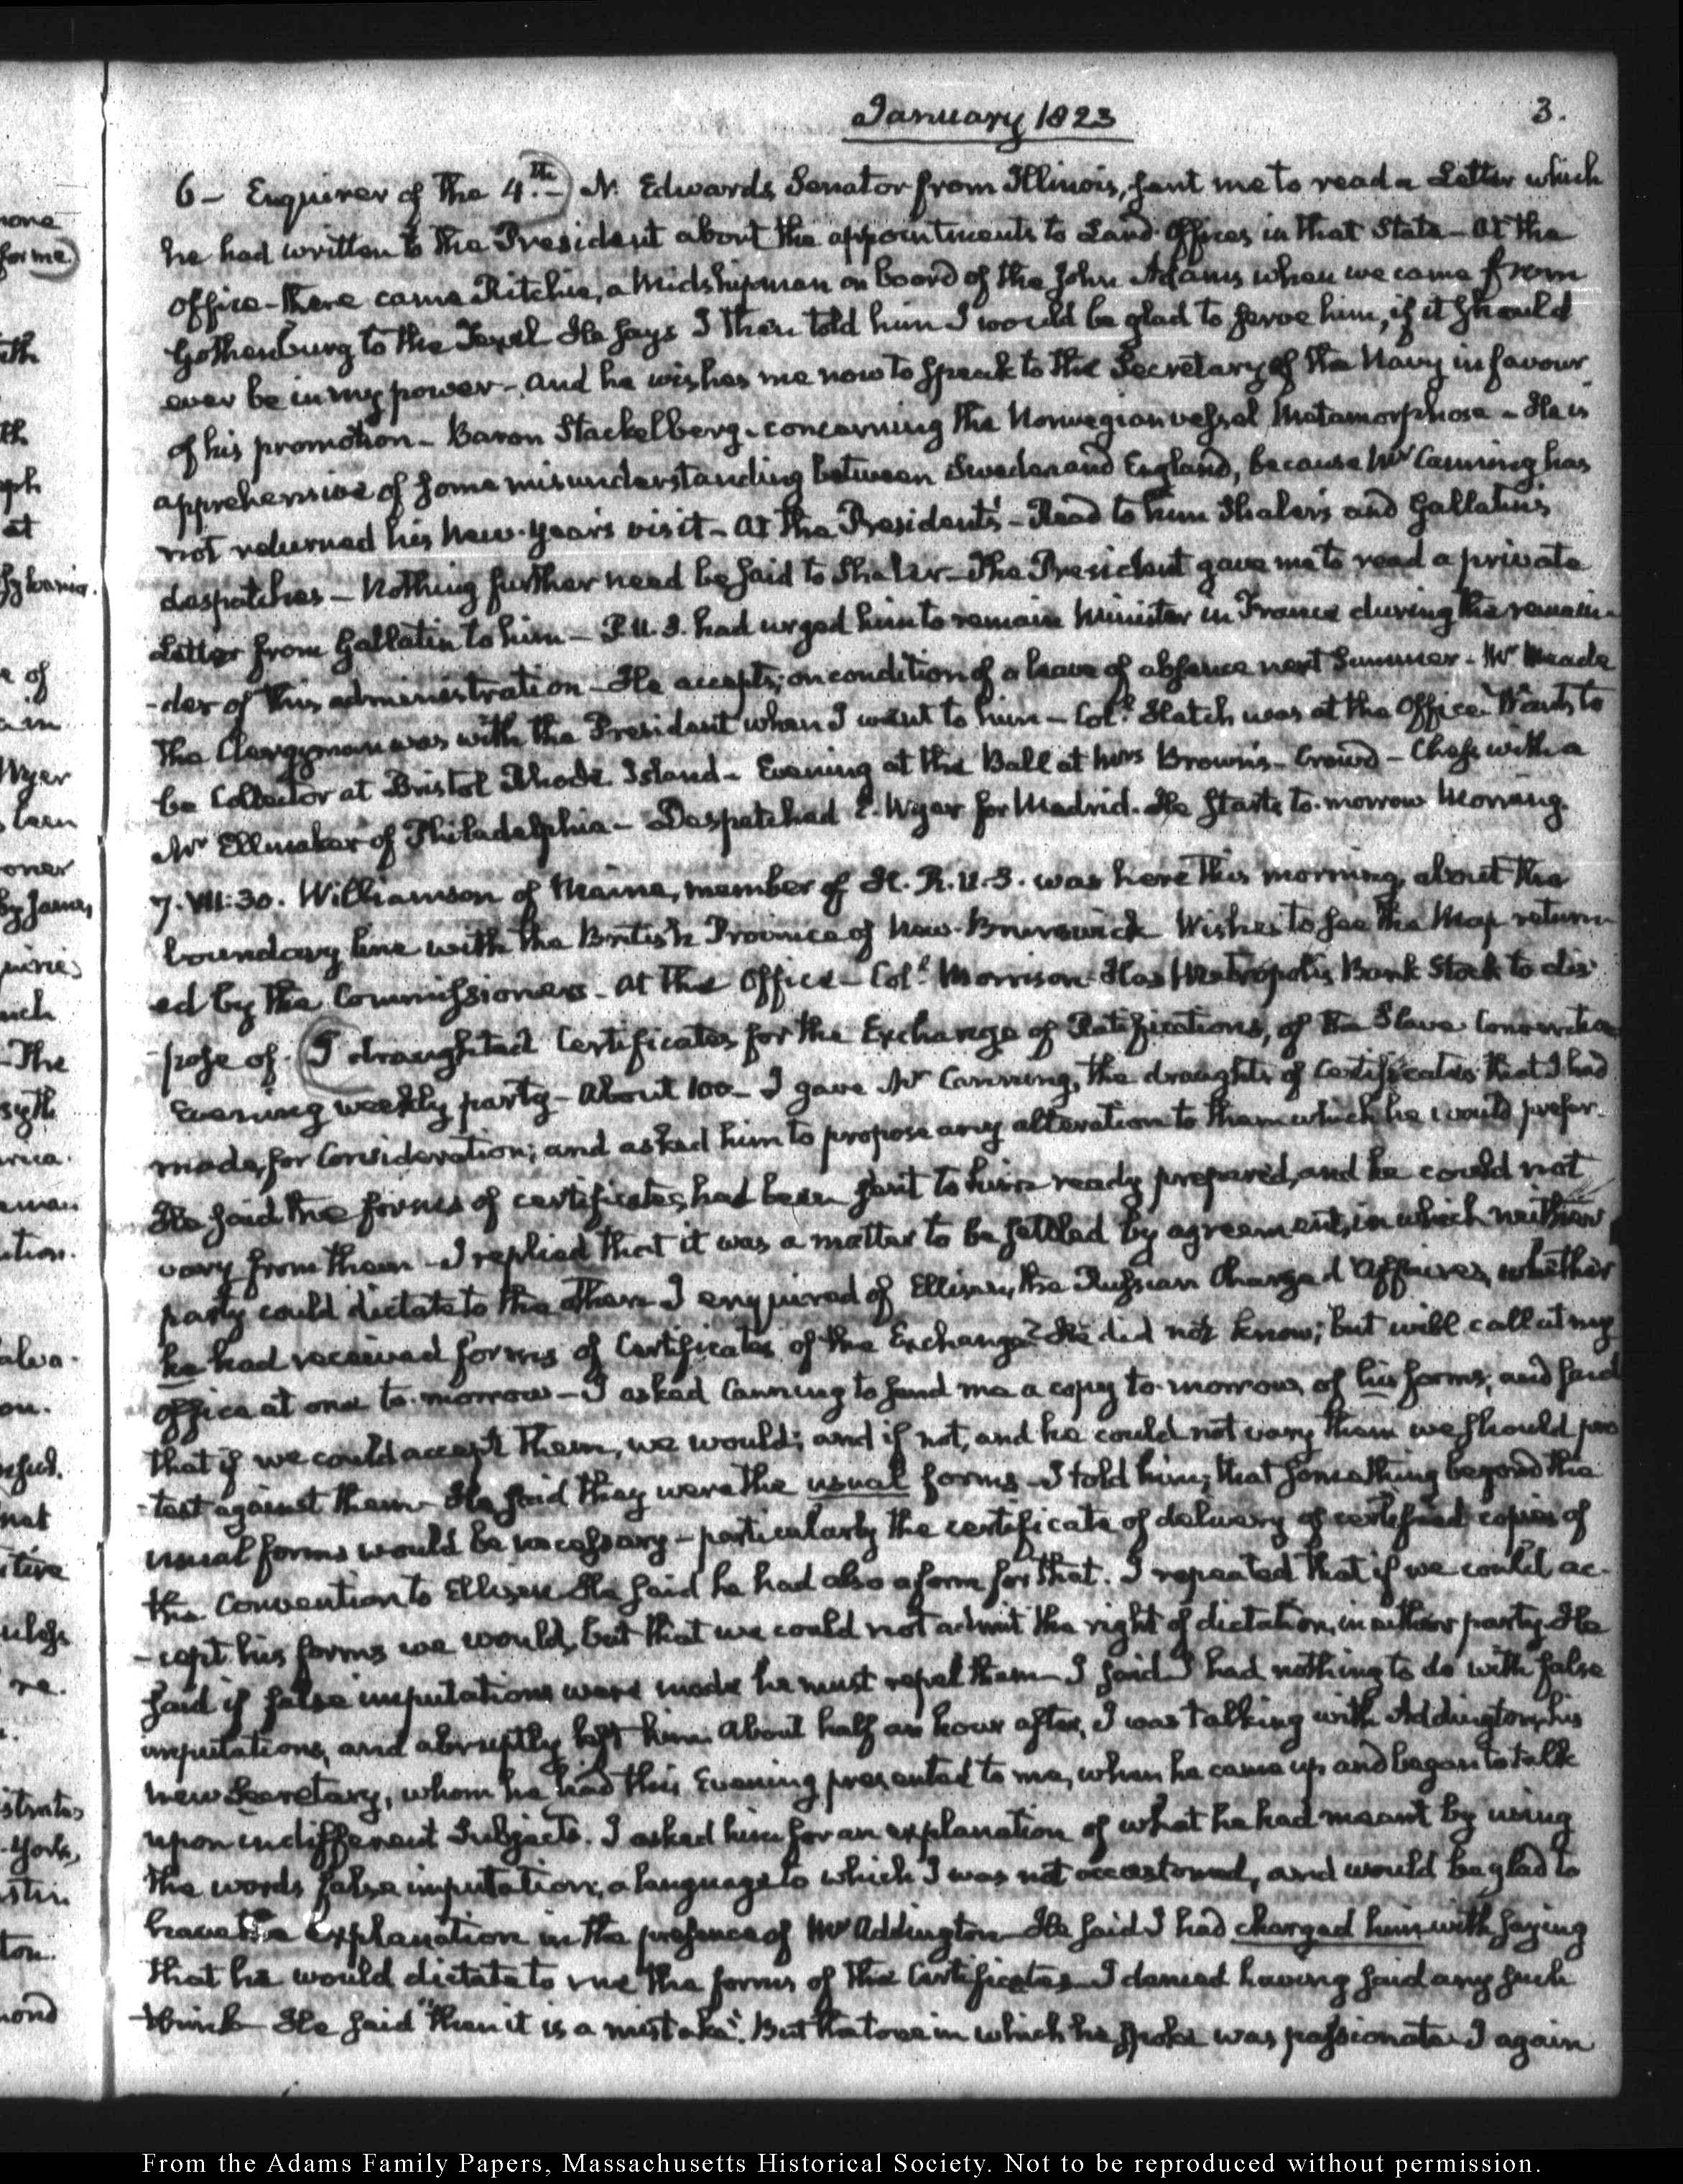 January 1823
3.
6 - Enquirer of the 4th.) N. Edwards Senator from Illinois, sent me to read a Letter which
he had written to the President about the appointments to Land Offices in that State - At the
office - there came Ritchie, a Midshipman on board of the John Adams when we came from
Gothenburg to the Texel He says I then told him I would be glad to serve him, if it should
ever be in my power - and he wishes me now to speak to the Secretary of the Navy in favour
of his promotion - Baron Stackelberg - concerning the Norwegian vessel Metamorphose - He is
apprehensive of some misunderstanding between Sweden and England, because Mr Canning has
not returned his New-years visit - At the President's - Read to him Shaler's and Gallatin's
despatches - Nothing further need be said to Shaler - The President gave me to read a private
Letter from Gallatin to him - P.U.S. had urged him to remain Minister in France during the remain-
-der of this administration - He accepts; on condition of a leave of absence next Summer - Mr Meade
the Clergyman was with the President when I went to him - Coll. Hatch was at the Office. Wants to
be Collector at Bristol Rhode Island - Evening at the Ball at Mrs Brown's - Crowd - Chess with a
Mr Ellmaker of Philadelphia - Despatched E. Wyer for Madrid. He starts to-morrow Morning.
7. VII:30. Williamson of Maine, member of H.R.U.S. was here this morning, about the
boundary line with the British Province of New-Brunswick Wishes to see the Map return-
ed by the Commissioners - At the Office - Coll. Morrison - Has Metropolis Bank Stock to dis-
-pose of. (I draughted Certificates for the Exchange of Ratifications, of the Slave Convention
Evening weekly party - About 100 - I gave Mr Canning, the draughts of Certificates that I had
made, for Consideration; and asked him to propose any alteration to them which he would prefer.
He said the forms of certificates had been sent to him ready prepared, and he could not
vary from them - I replied that it was a matter to be settled by agreement, in which neither
party could dictate to the other I enquired of Ellisen, the Russian Chargé d'Affaires, whether
he had received forms of Certificates of the Exchange? He did not know; but will call at my
office at one to-morrow - I asked Canning to send me a copy to-morrow of his forms; and said
that if we could accept them, we would; and if not, and he could not vary them we should pro
-test against them - He said they were the usual forms - I told him, that something beyond the
usual forms would be necessary - particularly the certificate of delivery of certified copies of
the Convention to Ellisen He said he had also a form for that. I repeated that if we could ac-
-cept his forms we would, but that we could not admit the right of dictation, in either party. He
said if false imputations were made he must repel them - I said I had nothing to do with false
imputations, and abruptly left him. About half an hour after, I was talking with Addington, his
new Secretary, whom he had this Evening presented to me, when he came up and began to talk
upon indifferent Subjects. I asked him for an explanation of what he had meant by using
the words false imputation, a language to which I was not accustomed, and would be glad to
have the explanation in the presence of Mr Addington - He said I had charged him with saying
that he would dictate to me the forms of the Certificates - I denied having said any such
think - He said "then it is a mistake". But the tone in which he spoke was passionate I again
none
for me)
Wyer
oner
by James
The
York,
From the Adams Family Papers, Massachusetts Historical Society. Not to be reproduced without permission.